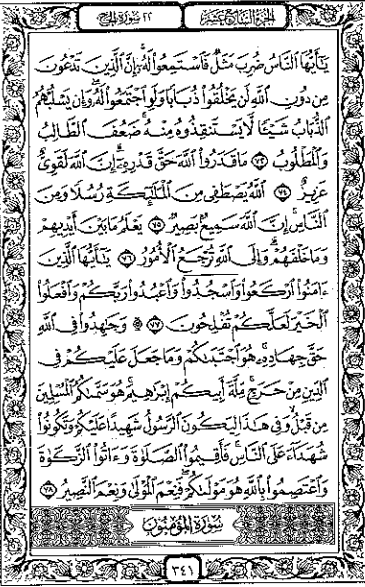 ٢٢ سورة الحج
الجزء السابع عشر
يَٰٓأَيُّهَا ٱلنَّاسُ ضُرِبَ مَثَلٌ فَٱسْتَمِعُوا۟ لَهُۥٓ إِنَّ ٱلَّذِينَ تَدْعُونَ
مِن دُونِ ٱللَّهِ لَن يَخْلُقُوا۟ ذُبَابًا وَلَوِ ٱجْتَمَعُوا۟ لَهُۥ وَإِن يَسْلُبْهُمُ
ٱلذُّبَابُ شَيْـًٔا لَّا يَسْتَنقِذُوهُ مِنْهُ ضَعُفَ ٱلطَّالِبُ
وَٱلْمَطْلُوبُ ٧٣ مَا قَدَرُوا۟ ٱللَّهَ حَقَّ قَدْرِهِۦٓ إِنَّ ٱللَّهَ لَقَوِىٌّ
عَزِيزٌ ٧٤ ٱللَّهُ يَصْطَفِى مِنَ ٱلْمَلَٰٓئِكَةِ رُسُلًا وَمِنَ
ٱلنَّاسِ إِنَّ ٱللَّهَ سَمِيعٌۢ بَصِيرٌ ٧٥ يَعْلَمُ مَا بَيْنَ أَيْدِيهِمْ
وَمَا خَلْفَهُمْ وَإِلَى ٱللَّهِ تُرْجَعُ ٱلْأُمُورُ ٧٦ يَٰٓأَيُّهَا ٱلَّذِينَ
ءَامَنُوا۟ ٱرْكَعُوا۟ وَٱسْجُدُوا۟ وَٱعْبُدُوا۟ رَبَّكُمْ وَٱفْعَلُوا۟
ٱلْخَيْرَ لَعَلَّكُمْ تُفْلِحُونَ ۩ ٧٧ وَجَٰهِدُوا۟ فِى ٱللَّهِ
حَقَّ جِهَادِهِۦ هُوَ ٱجْتَبَىٰكُمْ وَمَا جَعَلَ عَلَيْكُمْ فِى
ٱلدِّينِ مِنْ حَرَجٍ مِّلَّةَ أَبِيكُمْ إِبْرَٰهِيمَ هُوَ سَمَّىٰكُمُ ٱلْمُسْلِمِينَ
مِن قَبْلُ وَفِى هَٰذَا لِيَكُونَ ٱلرَّسُولُ شَهِيدًا عَلَيْكُمْ وَتَكُونُوا۟
شُهَدَآءَ عَلَى ٱلنَّاسِ فَأَقِيمُوا۟ ٱلصَّلَوٰةَ وَءَاتُوا۟ ٱلزَّكَوٰةَ
وَٱعْتَصِمُوا۟ بِٱللَّهِ هُوَ مَوْلَىٰكُمْ فَنِعْمَ ٱلْمَوْلَىٰ وَنِعْمَ ٱلنَّصِيرُ ٧٨
سورة المؤمنون
٣٤١